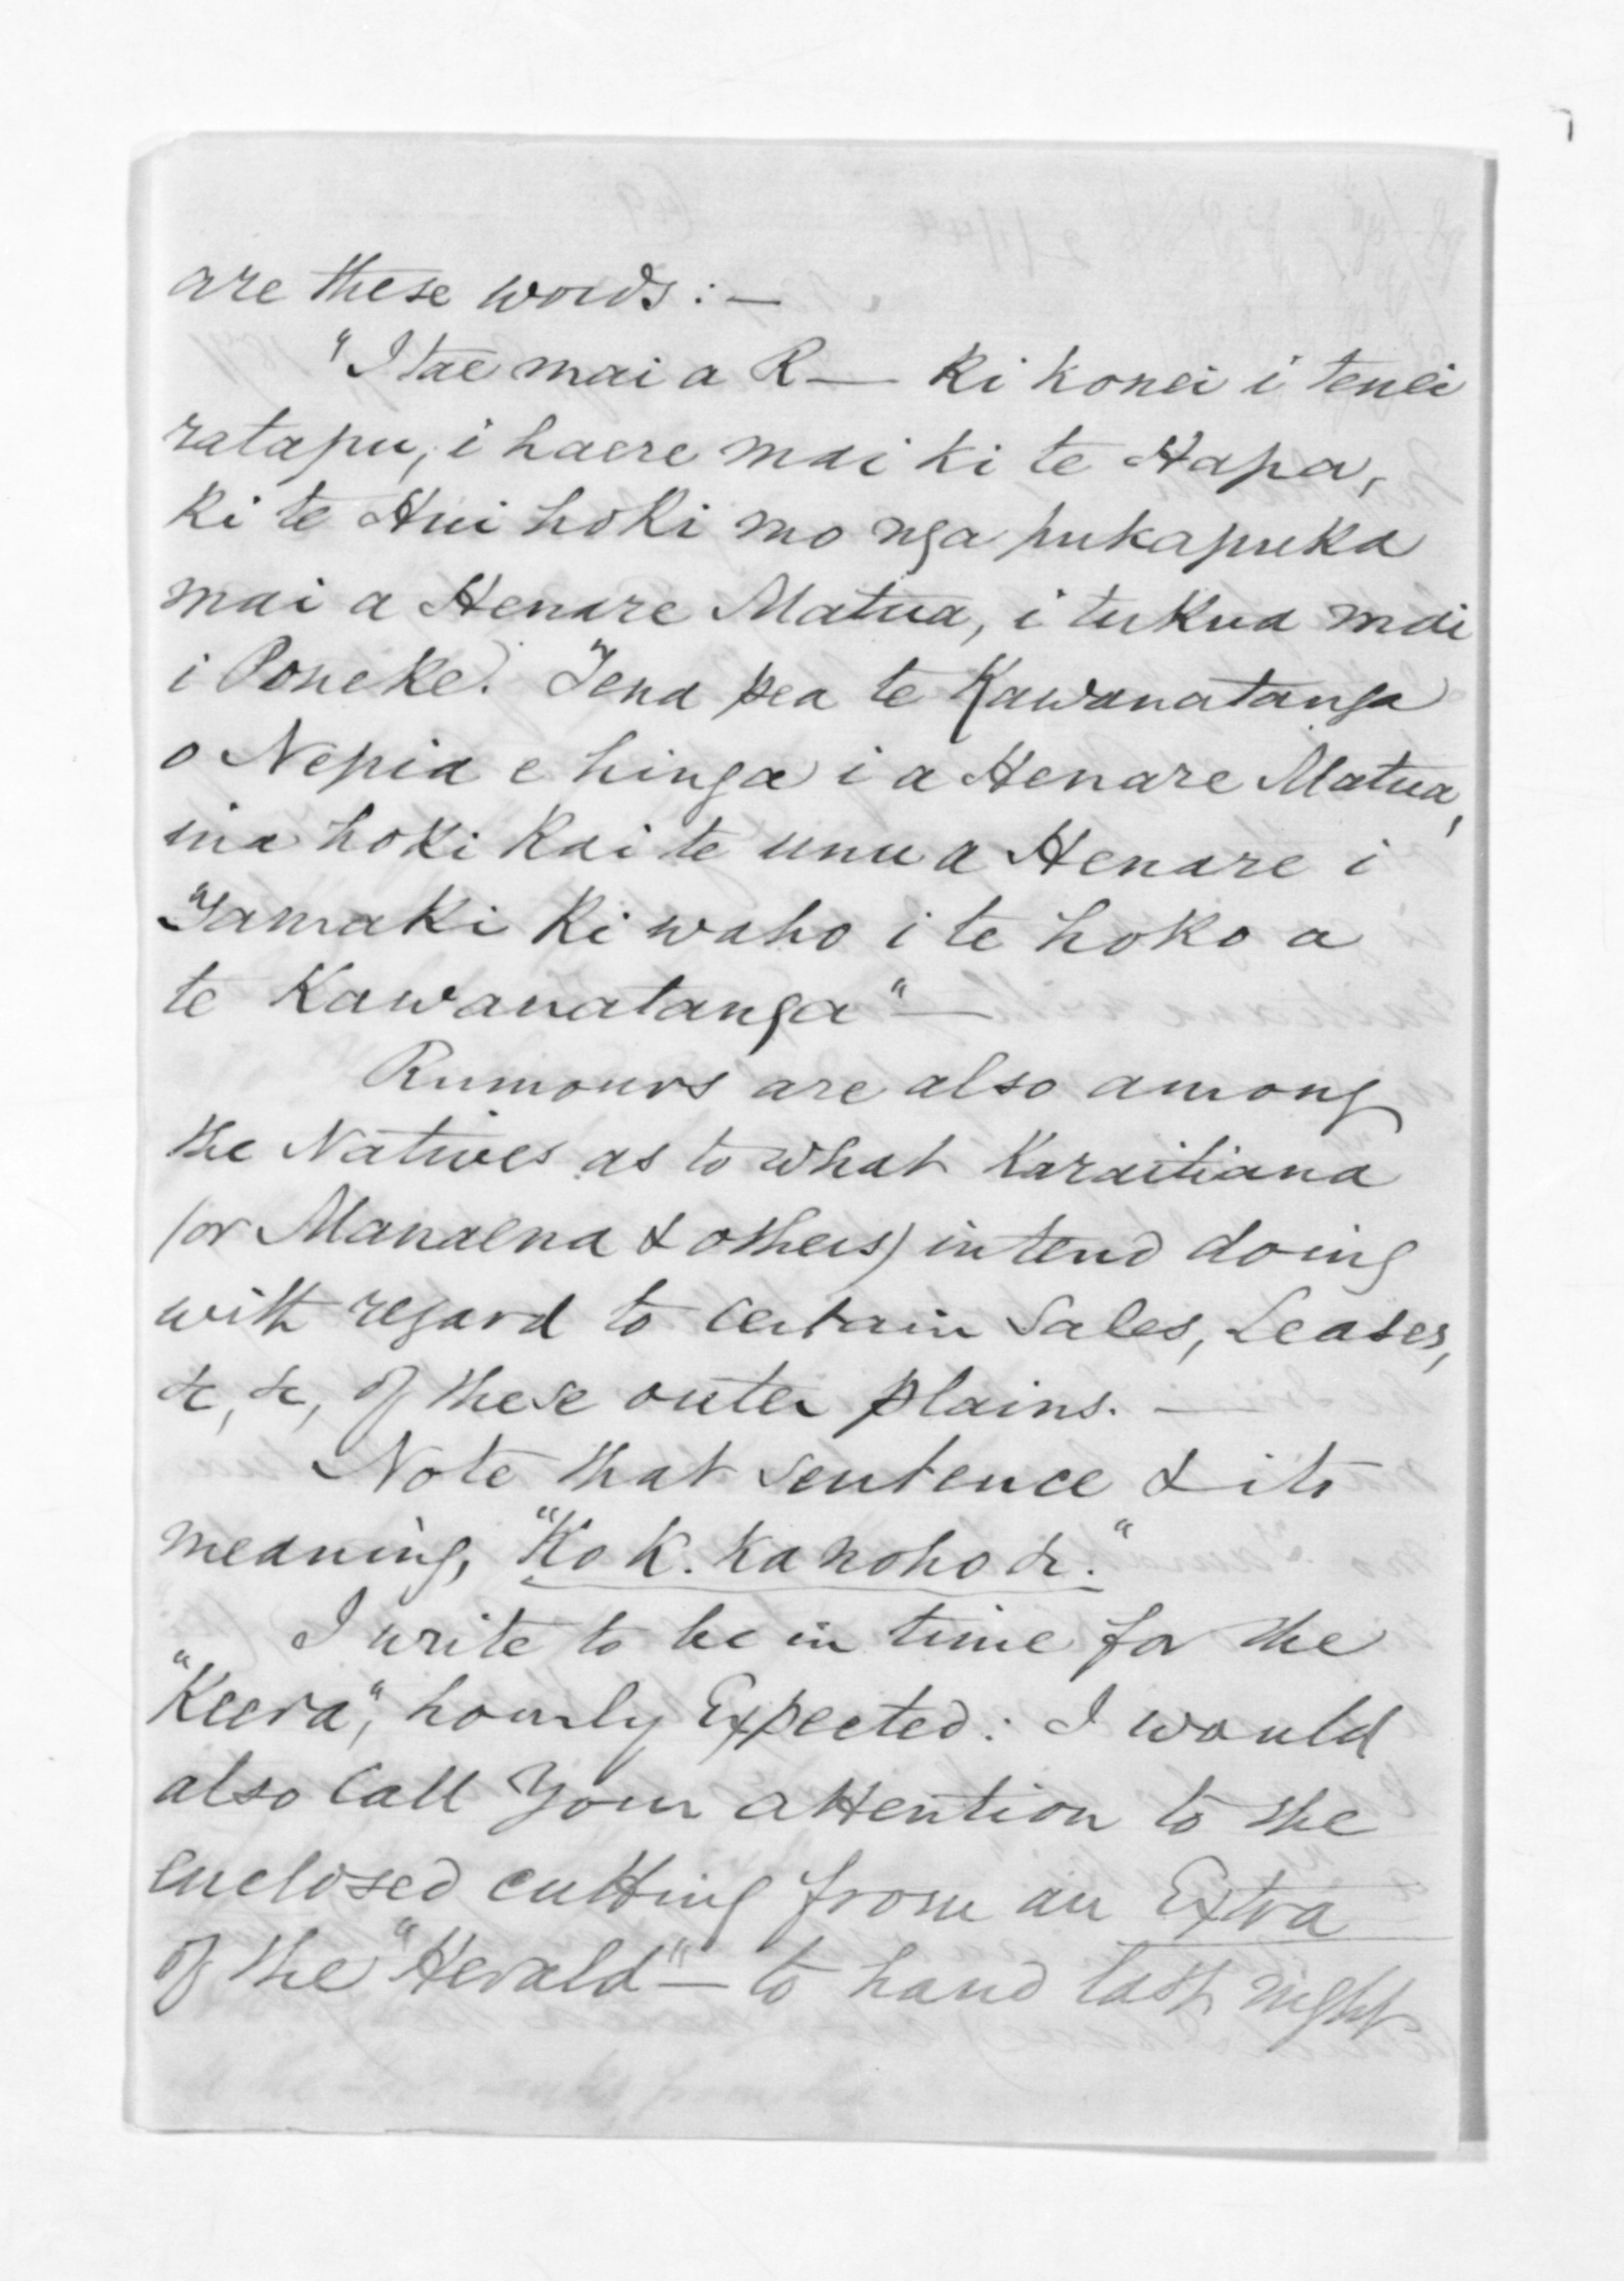 are these words: —
"I tae mai a R— ki konei i tenei
ratapu, i haere mai ki te Hapa,
ki te Hui hoki mo nga pukapuka
mai a Henare Matua, i tukua mai
i Poneke. Tena pea te Kawanatanga
o Nepia e hinga i a Henare Matua,
ina hoki kai te unu a Henare i
"Tamaki ki waho i te hoko a
te Kawanatanga" —
Rumours are also among
the Natives as to what Karaitiana
(or Manaena & others) intend doing
with regard to certain Sales, Leases,
&c, &c, of these outer plains. —
Note that sentence & its
meaning, "Ko K. ka noho &c."
I write to be in time for the
"Keera", hourly Expected: I would
also call your attention to the
enclosed cutting from an Extra
of the "Herald" — to hand last night